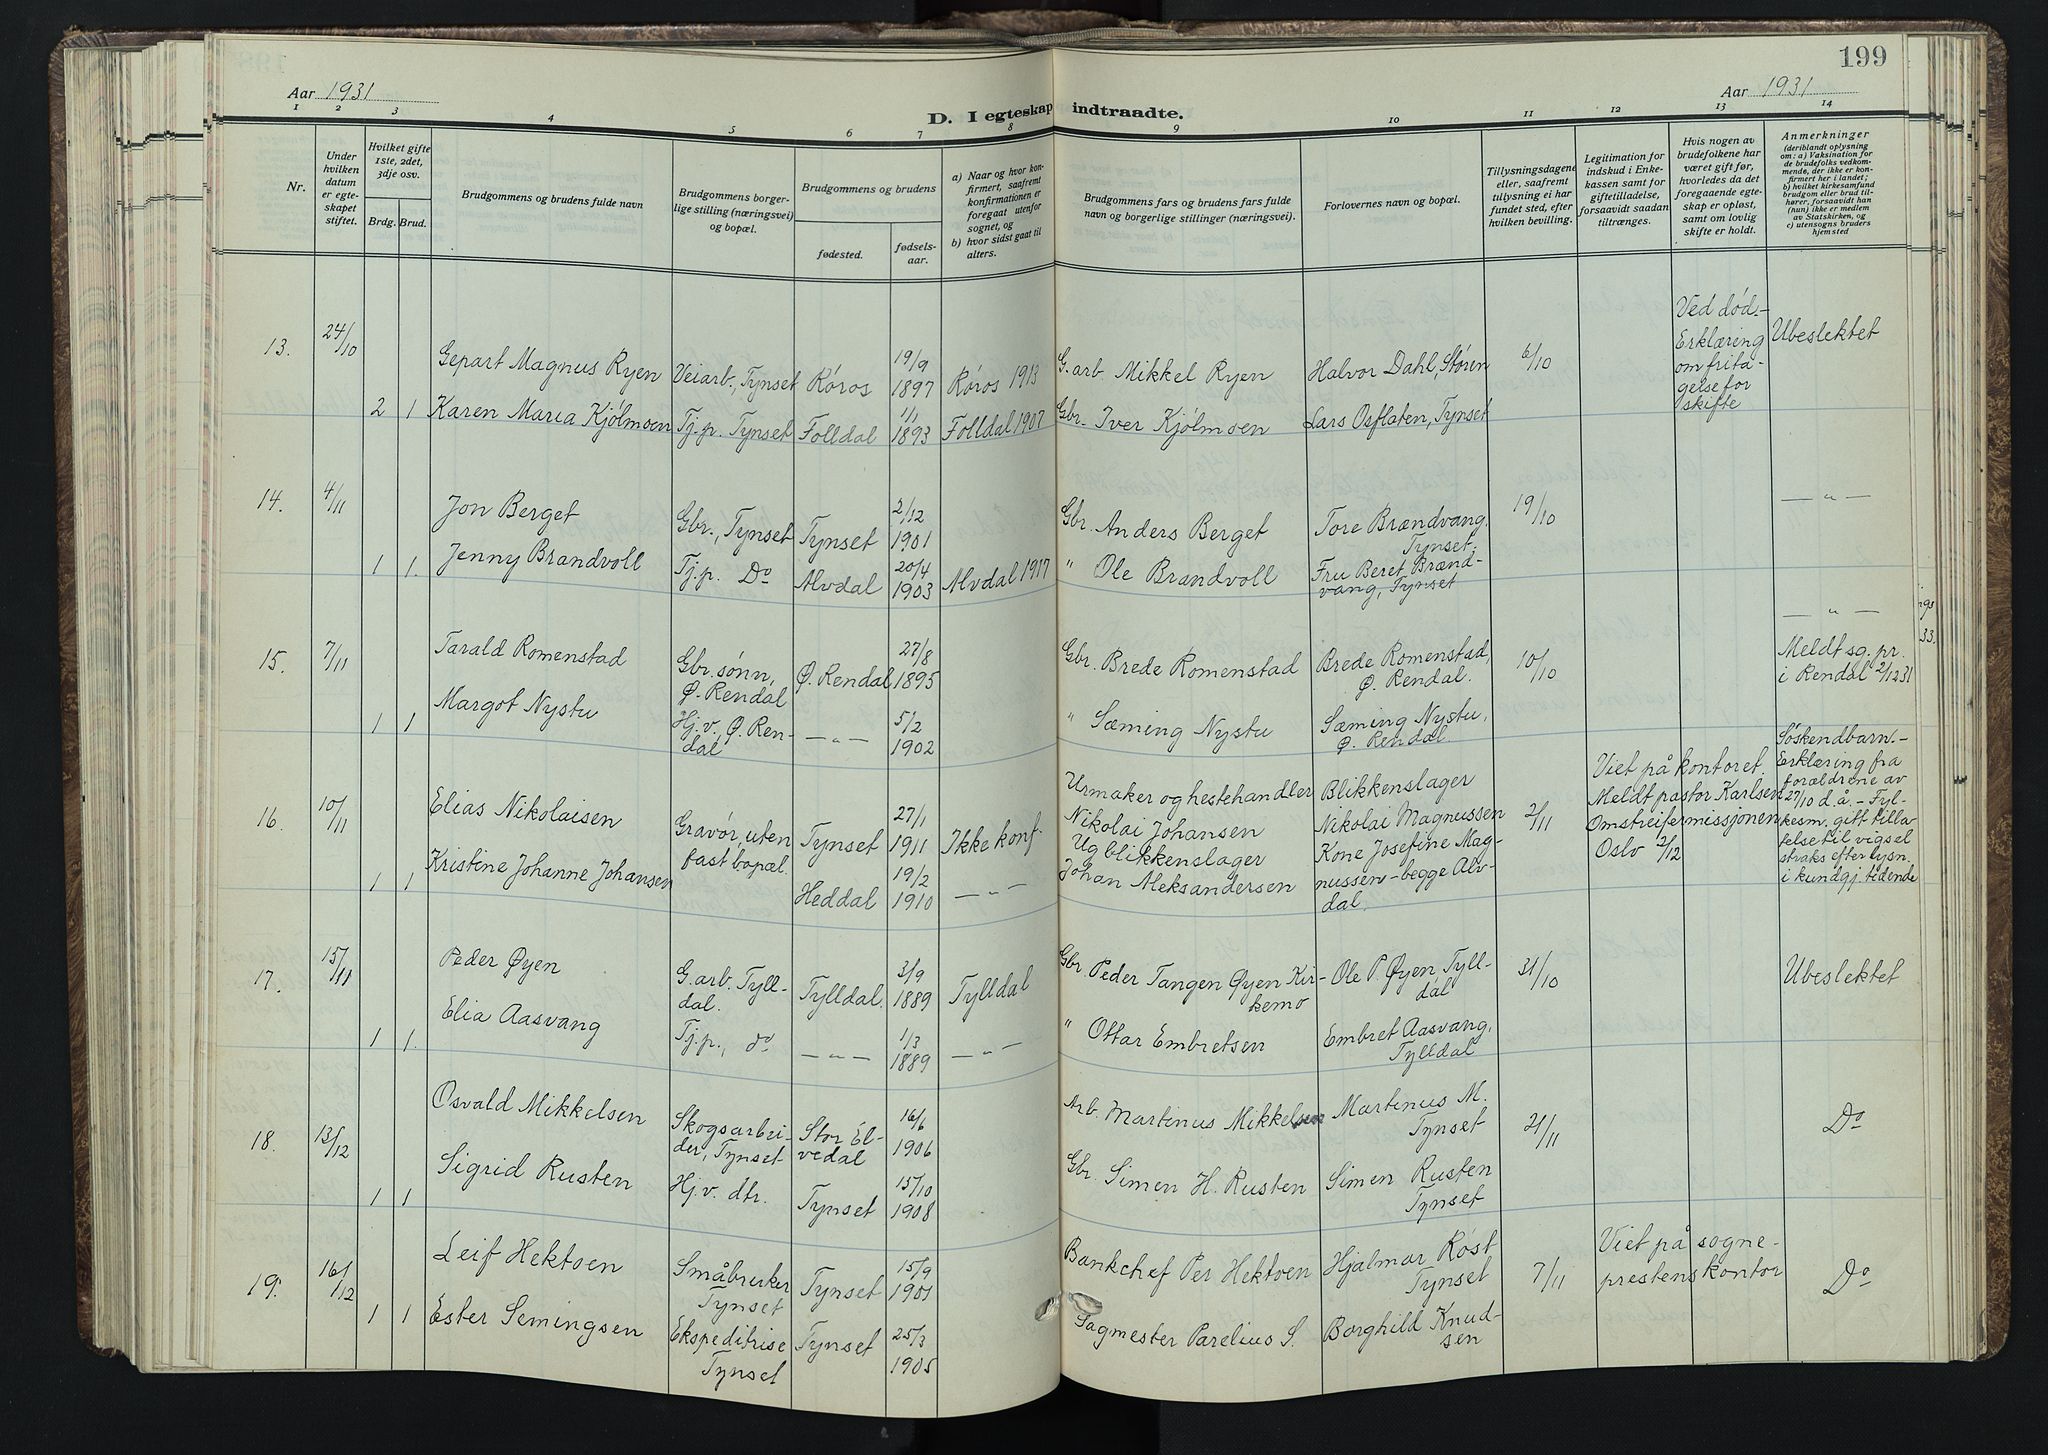 199
Aar 1931
Aar 1931
D. I egteskap indtraadte.
1 2 3 4 5 6 7 8 9 10 11 12 13 14
Nr.
Under hvilken datum er egteskapet stiftet.
Hvilket gifte 1ste, 2det, 3dje osv.
Brdg. Brud.
Brudgommens og brudens fulde navn
Brudgommens borgerlige stilling (næringsvei) og bopæl.
Brudgommens og brudens
fødested.
fødselsaar.
a) Naar og hvor konfirmert, saafremt konfirmationen er foregaat utenfor sognet, og
b) hvor sidst gaat til alters.
Brudgommens fars og brudens fars fulde navn og borgerlige stillinger (næringsvei).
Forlovernes navn og bopæl.
Tillysningsdagene eller, saafremt tillysning ei har fundet sted, efter hvilken bevilling.
Legitimation for indskud i Enkekassen samt for giftetilladelse, forsaavidt saadan tiltrænges.
Hvis nogen av brudefolkene har været gift før, hvorledes da det foregaaende egteskap er opløst, samt om lovlig skifte er holdt.
Anmerkninger
(deriblandt oplysning om: a) Vaksination for de brudefolks vedkommende, der ikke er konfirmert her i landet;
b) hvilket kirkesamfund brudgom eller brud tilhører, forsaavidt han (hun) ikke er medlem av Statskirken, og
c) utensogns bruders hjemsted
13. 24/10 Gepart Magnus Ryen Veiarb., Tynset Røros 19/9 1897 Røros 1913 G.arb. Mikkel Ryen Halvor Dahl, Støren 6/10 Ved død.- Erklæring om fritagelse for skifte Ubeslektet
2 1 Karen Maria Kjølmoen Tj.p. Tynset Folldal 1/1 1893 Folldal 1907 Gbr. Iver Kjølmoen Lars Osflaten, Tynset
14. 4/11 Jon Berget Gbr., Tynset Tynset 2/12 1901 Gbr. Anders Berget Tore Brændvang. Tynset. 19/10 — " —
1 1. Jenny Brandvoll Tj.p. Do Alvdal 20/4 1903 Alvdal 1917 " Ole Brandvoll Fru Beret Brændvang, Tynset
15. 7/11 Tarald Romenstad Gbr. sønn, Ø. Rendal Ø. Rendal 27/8 1895 Gbr. Brede Romenstad Brede Romenstad, Ø. Rendal. 10/10 — " — Meldt sg. pr. i Rendal 2/12 31
1 1 Margot Nystu Hj.v., Ø. Rendal — " — 5/2 1902 " Sæming Nystu Sæming Nystu, Ø. Rendal.
16. 10/11 Elias Nikolaisen Gravør, uten fast bopæl. Tynset 27/1 1911 Ikke konf. Urmaker og hestehandler Nikolai Johansen Blikkenslager Nikolai Magnussen 2/11 Viet på kontoret. Meldt pastor Karlsen Omstreifermissjonen Oslo 2/12 Søskendbarn.- Erklæring fra forældrene av 27/10 d.å. - Fylkesm. gitt tillatelse til vigsel straks efter lysn. i kundgj. tidende
1 1 Kristine Johanne Johansen Heddal 19/2 1910 — " — Ug blikkenslager Johan Aleksandersen Kone Josefine Magnussen - begge Alvdal.
17. 15/11 Peder Øyen G.arb. Tylldal. Tylldal. 3/9 1889 Tylldal Gbr. Peder Tangen Øyen Kirkemo Ole P Øyen, Tylldal 31/10 Ubeslektet
1 1. Elia Aasvang Tj.p., do — " — 1/3 1889 — " — " Ottar Embretsen Embret Aasvang, Tylldal
18. 13/12 Osvald Mikkelsen Skogsarbeider, Tynset Stor Elvedal 16/6 1906 Arb. Martinus Mikkelsen Martinus M. Tynset 21/11 Do
1 1 Sigrid Rusten Hj.v. dtr. Tynset 15/10 1908 Gbr. Simen H. Rusten Simen Rusten Tynset
19. 16/12 Leif Hektoen Småbruker Tynset Tynset 15/9 1901 Bankchef Per Hektoen Hjalmar Røst Tynset 7/11 Viet på sogneprestens kontor Do
1 1 Ester Semingsen Ekspeditrise Tynset Tynset 25/3 1905 Sagmester Parelius S. Borghild Knudsen